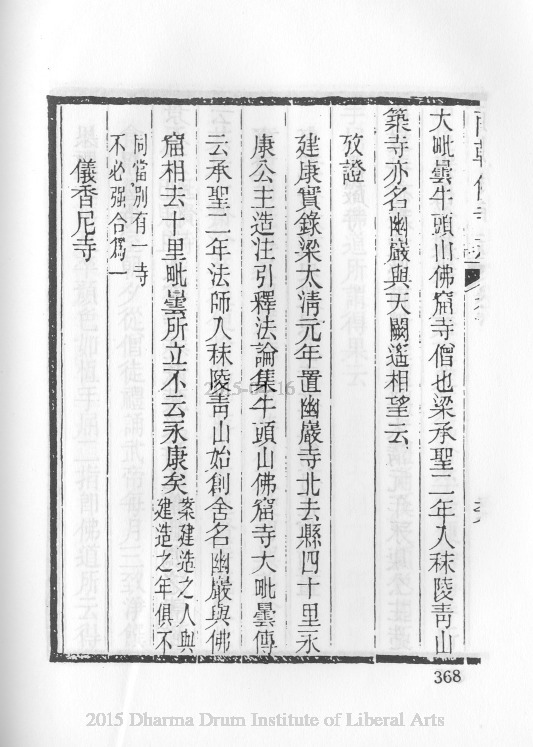 大毗曇牛頭山佛窟寺僧也梁承聖二年入秣陵青山
築寺亦名幽巖與天闕遥相望云
攷證
建康實錄梁太清元年置幽巖寺北去縣四十里永
康公主造注引釋法論集牛頭山佛窟寺大毗曇傳
云承聖二年法師入秣陵青山始創舍名幽巖與佛
窟相去十里毗曇所立不云永康矣
案建造之人與
建造之年俱不
同當別有一寺
不必强合爲一
儀香尼寺
368
2015 Dharma Drum Institute of Liberal Arts